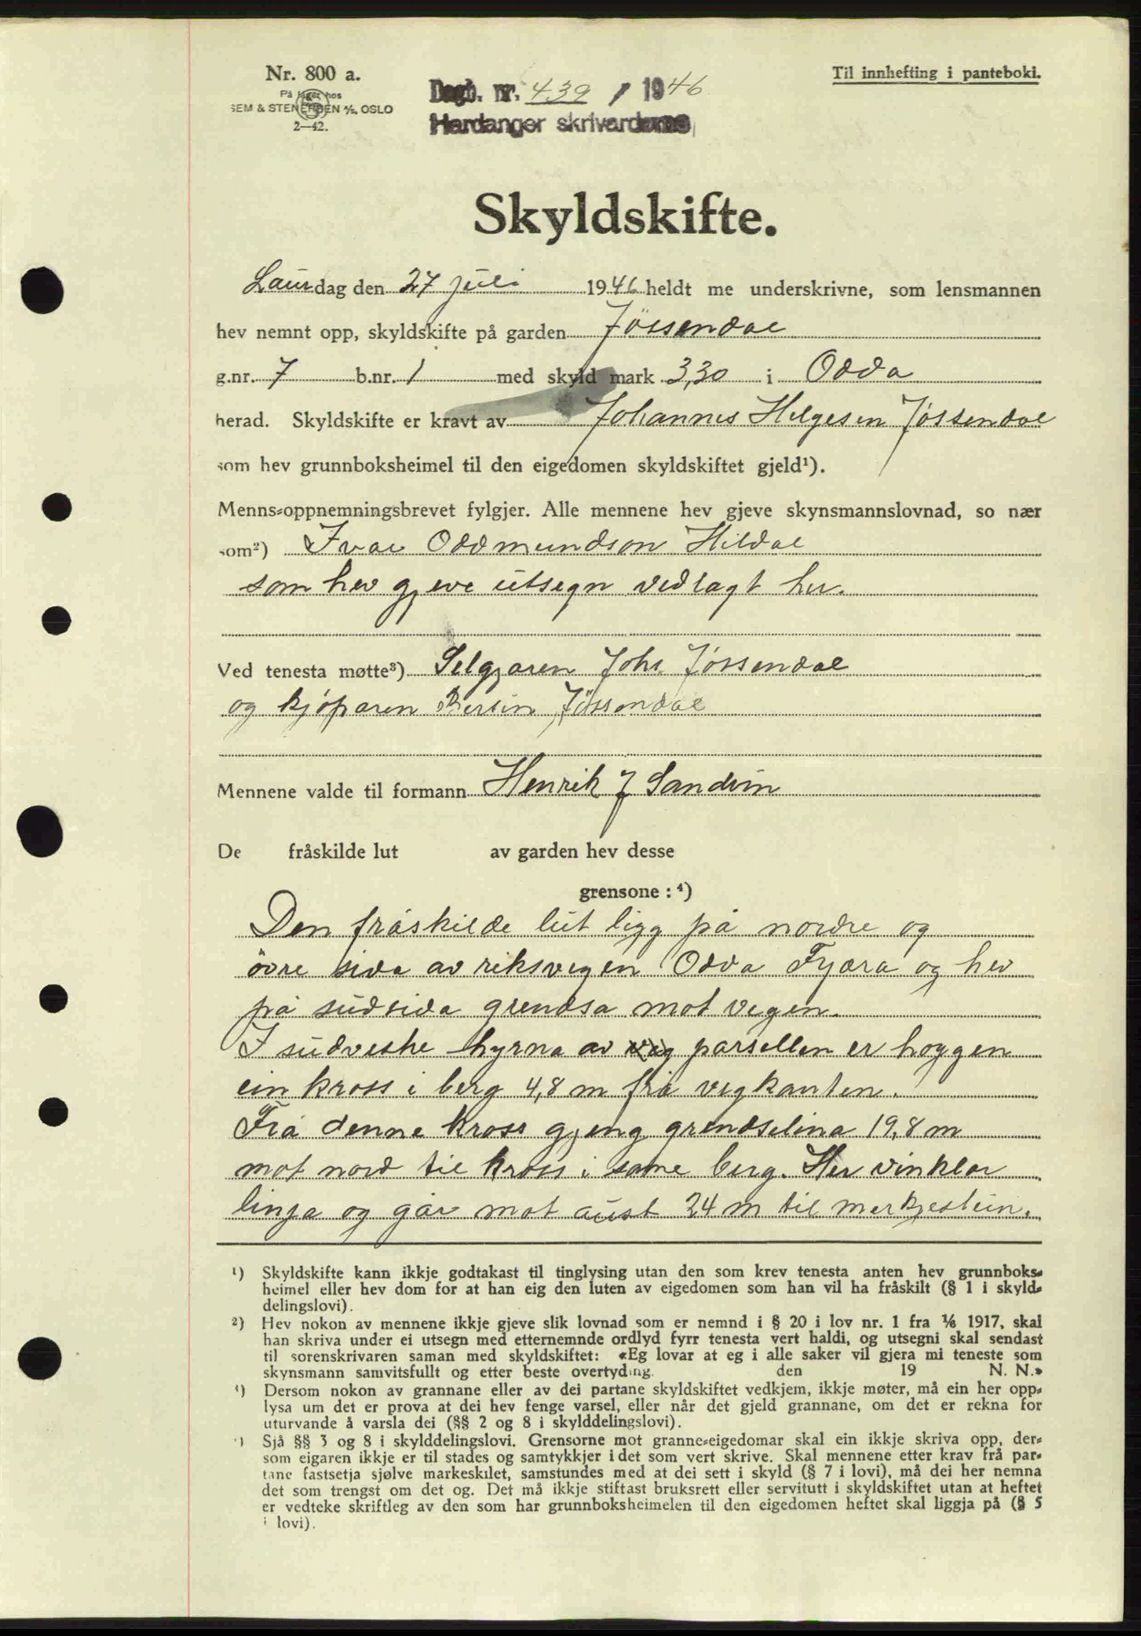 Nr. 800 a.
På lager hos
SEM & STENERSEN A/S, OSLO
2—42.
Dagb. nr. 439 / 1946
Hardanger skrivardøme
Til innhefting i panteboki.
Skyldskifte.
Laurdag den 27 juli 1946 heldt me underskrivne, som lensmannen
hev nemnt opp, skyldskifte på garden Jössendal
g.nr. 7 b.nr. 1 med skyld mark 3,30 i Odda
herad. Skyldskifte er kravt av Johannes Helgesen Jøssendal
som hev grunnboksheimel til den eigedomen skyldskiftet gjeld¹).
Menns-oppnemningsbrevet fylgjer. Alle mennene hev gjeve skynsmannslovnad, so nær
som²) Ivar Oddmundson Hildal
som hev gjeve utsegn vedlagt her.
Ved tenesta møtte³) Seljaren Johs. Jøssendal
og kjøparen Bersin Jøssendal
Mennene valde til formann Henrik J Sandvin
De fråskilde lut av garden hev desse
grensone : ⁴)
Den fråskilde lut ligg på nordre og
övre sida av riksvegen Odda Fjæra og hev
på sudsida grendsa mot vegen.
I sudvestre hyrna av veg parsellen er hoggen
ein kross i berg 4,8 m frå vegkanten.
Frå denne kross gjeng grendselina 19,8 m
mot nord til kross i same berg. Her vinklar
linja og går mot aust 24 m til merkjestein.
¹) Skyldskifte kann ikkje godtakast til tinglysing utan den som krev tenesta anten hev grunnboks-
heimel eller hev dom for at han eig den luten av eigedomen som han vil ha fråskilt (§ 1 i skyld-
delingslovi).
²) Hev nokon av mennene ikkje gjeve slik lovnad som er nemnd i § 20 i lov nr. 1 fra ¹⁄₆ 1917, skal
han skriva under ei utsegn med etternemnde ordlyd fyrr tenesta vert haldi, og utsegni skal sendast
til sorenskrivaren saman med skyldskiftet: «Eg lovar at eg i alle saker vil gjera mi teneste som
skynsmann samvitsfullt og etter beste overtyding. den 19 N. N.»
³) Dersom nokon av grannane eller av dei partane skyldskiftet vedkjem, ikkje møter, må ein her opp-
lysa um det er prova at dei hev fenge varsel, eller når det gjeld grannane, om det er rekna for
uturvande å varsla dei (§§ 2 og 8 i skylddelingslovi).
⁴) Sjå §§ 3 og 8 i skylddelingslovi. Grensorne mot granne-eigedomar skal ein ikkje skriva opp, der-
som eigaren ikkje er til stades og samtykkjer i det som vert skrive. Skal mennene etter krav frå par-
tane fastsetja sjølve markeskilet, samstundes med at dei sett i skyld (§ 7 i lovi), må dei her nemna
det som trengst om det og. Det må ikkje stiftast bruksrett eller servitutt i skyldskiftet utan at heftet
er vedteke skriftleg av den som har grunnboksheimelen til den eigedomen heftet skal liggja på (§ 5
i lovi).